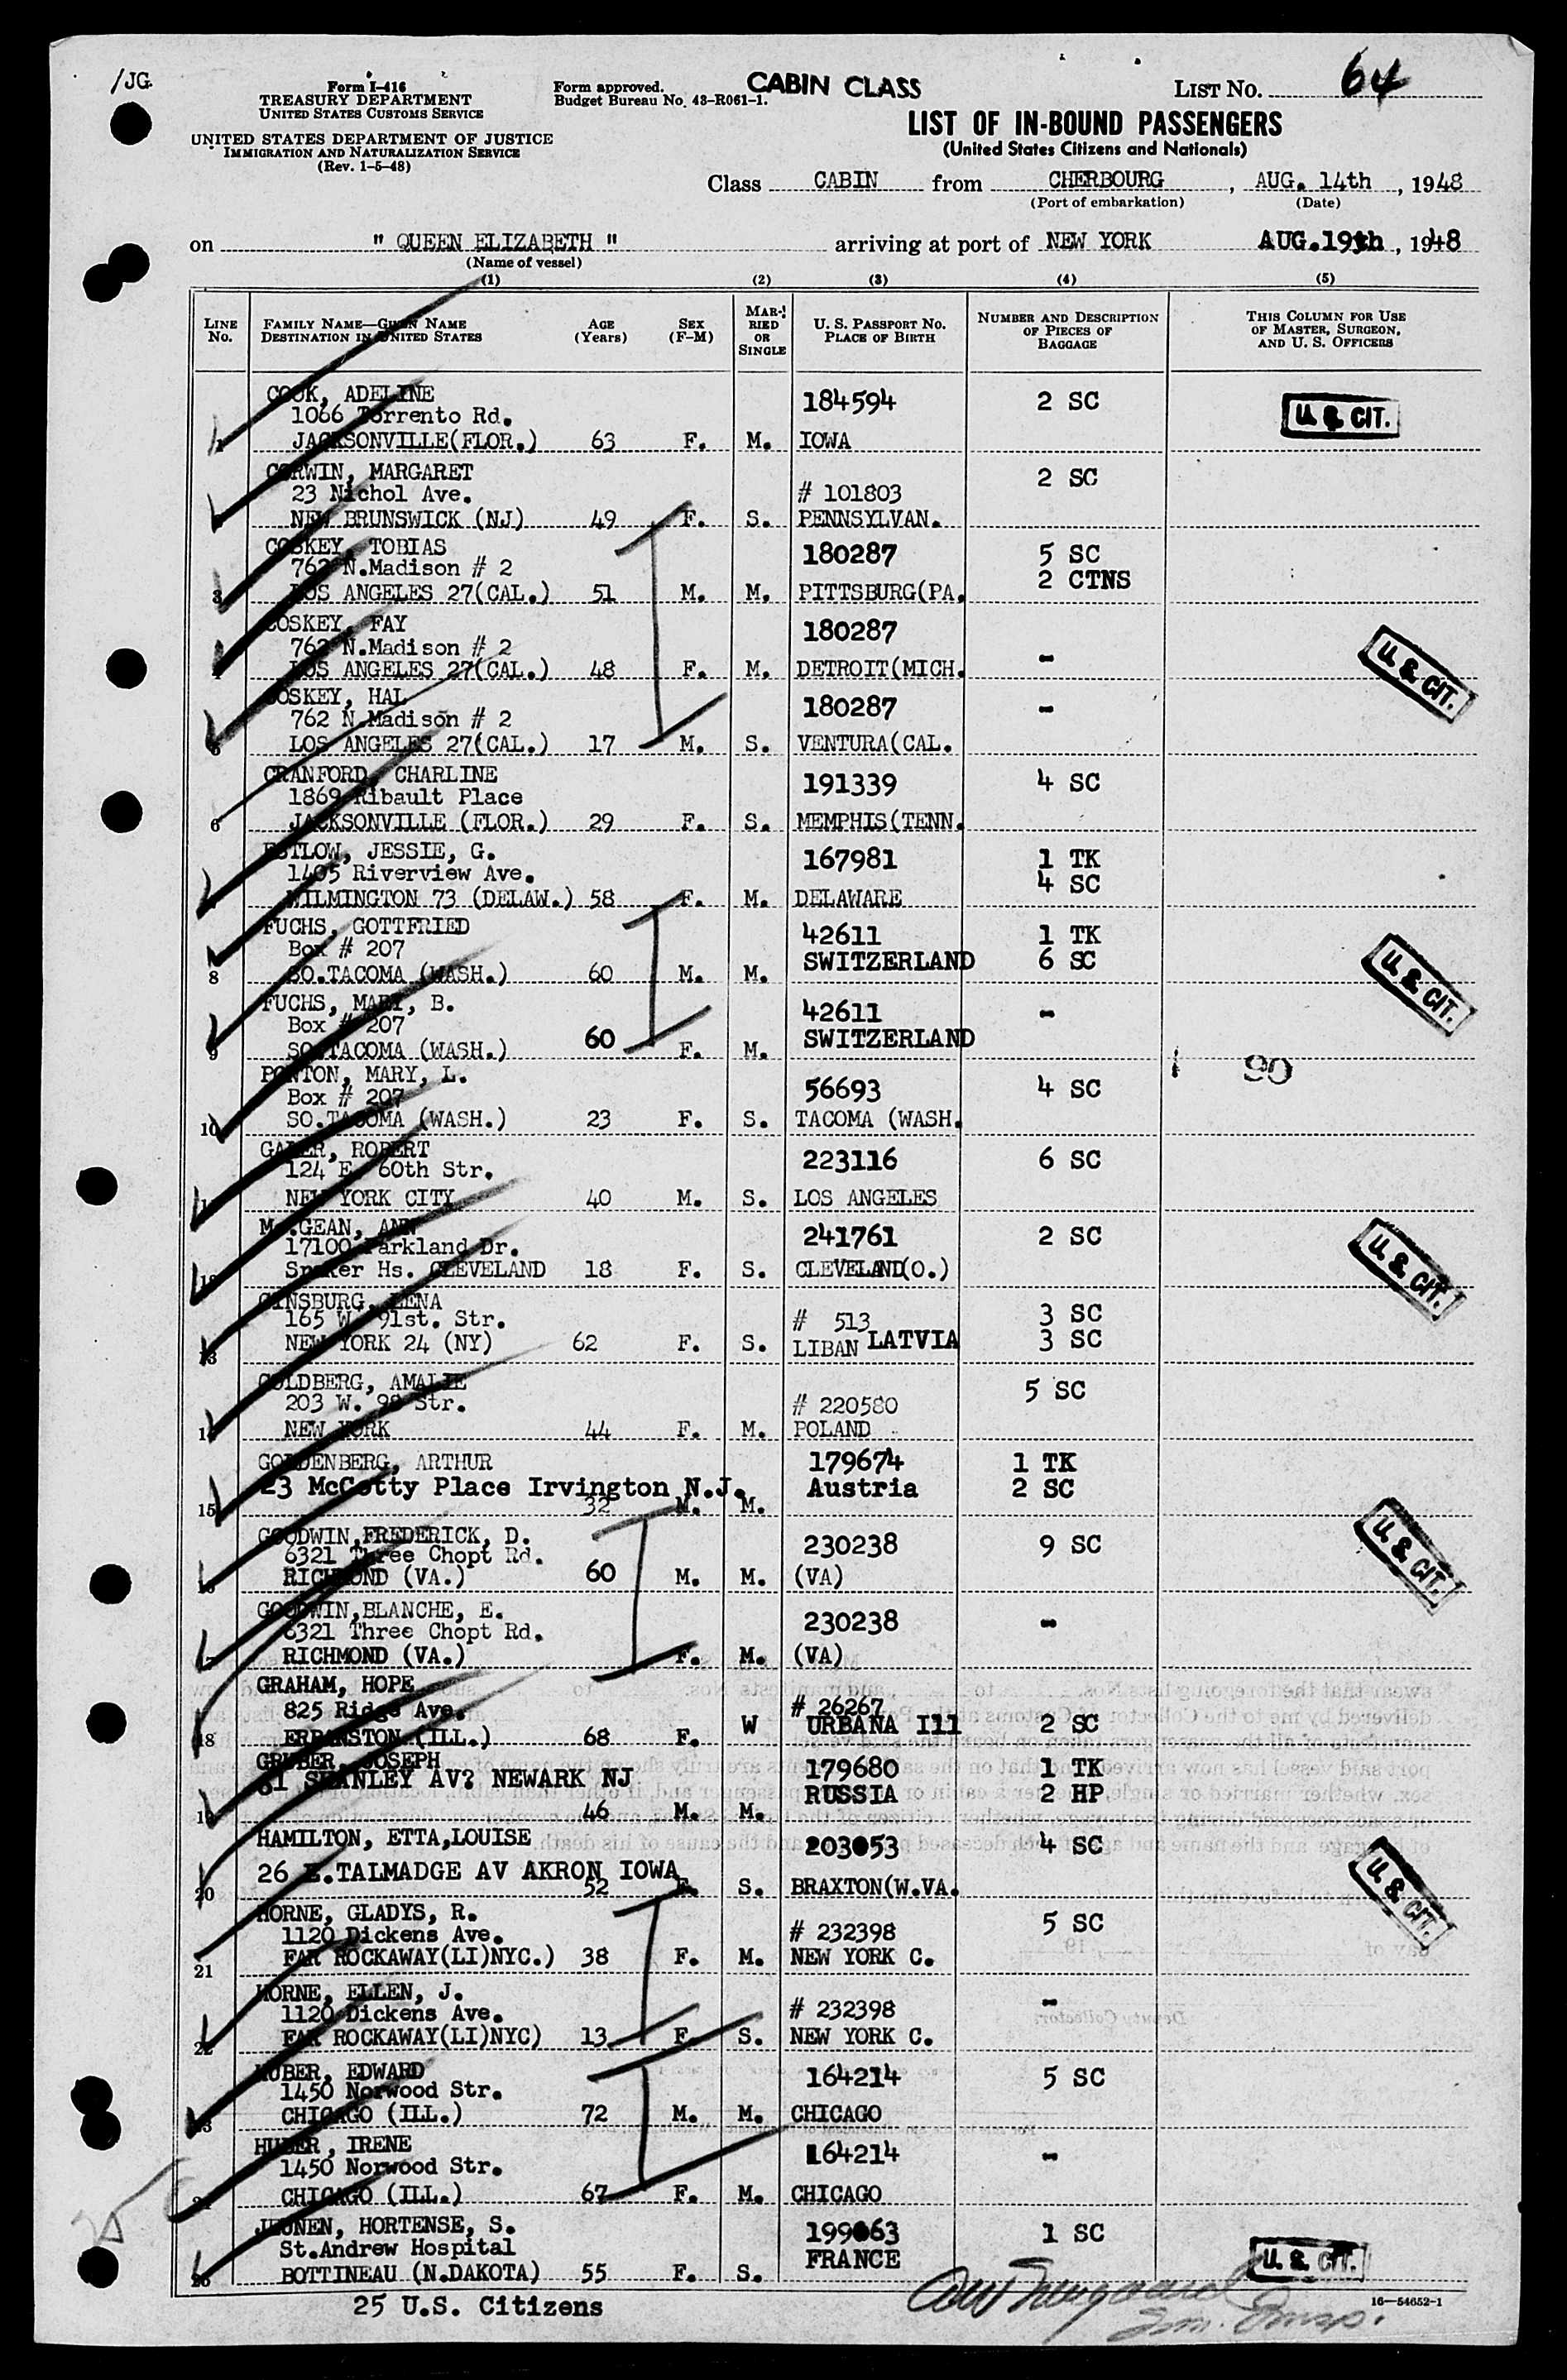 /JG.
Form I-416
TREASURY DEPARTMENT
UNITED STATES CUSTOMS SERVICE
UNITED STATES DEPARTMENT OF JUSTICE
IMMIGRATION AND NATURALIZATION SERVICE
(Rev. 1-5-48)
Form approved.
Budget Bureau No. 43-R061-1.
CABIN CLASS
LIST NO. 64
LIST OF IN-BOUND PASSENGERS
(United States Citizens and Nationals)
Class CABIN from CHERBOURG, AUG. 14th, 1948
(Port of embarkation) (Date)
on " QUEEN ELIZABETH " arriving at port of NEW YORK AUG.19th, 1948
(Name of vessel)
(1) (2) (3) (4) (5)
LINE NO. FAMILY NAME—GIVEN NAME DESTINATION IN UNITED STATES AGE (Years) SEX (F-M) MARRIED OR SINGLE U. S. PASSPORT NO. PLACE OF BIRTH NUMBER AND DESCRIPTION OF PIECES OF BAGGAGE THIS COLUMN FOR USE OF MASTER, SURGEON, AND U. S. OFFICERS
COOK, ADELINE 184594 2 SC U. S. CIT.
1066 Torrento Rd.
JACKSONVILLE(FLOR.) 63 F. M. IOWA
CORWIN, MARGARET 2 SC
23 Nichol Ave. # 101803
NEW BRUNSWICK (NJ) 49 F. S. PENNSYLVAN.
COSKEY, TOBIAS 180287 5 SC
762 N.Madison # 2 2 CTNS
3 LOS ANGELES 27(CAL.) 51 M. M. PITTSBURG(PA.
COSKEY, FAY 180287
762 N.Madison # 2 - U. S. CIT.
4 LOS ANGELES 27(CAL.) 48 F. M. DETROIT(MICH.
COSKEY, HAL 180287 -
762 N.Madison # 2
5 LOS ANGELES 27(CAL.) 17 M. S. VENTURA(CAL.
CRANFORD, CHARLINE 191339 4 SC
1869 Ribault Place
6 JACKSONVILLE (FLOR.) 29 F. S. MEMPHIS(TENN.
ESTLOW, JESSIE, G. 167981 1 TK
1405 Riverview Ave. 4 SC
WILMINGTON 73 (DELAW.) 58 F. M. DELAWARE
FUCHS, GOTTFRIED 42611 1 TK
Box # 207 SWITZERLAND 6 SC U. S. CIT.
8 SO.TACOMA (WASH.) 60 M. M.
FUCHS, MARY, B. 42611 -
Box # 207 SWITZERLAND
9 SO.TACOMA (WASH.) 60 F. M.
90
PONTON, MARY, L. 56693 4 SC
Box # 207
10 SO.TACOMA (WASH.) 23 F. S. TACOMA (WASH.
ROBERT 223116 6 SC
124 E. 60th Str.
11 NEW YORK CITY 40 M. S. LOS ANGELES
GEAN, ANN 241761 2 SC U. S. CIT.
17100 Parkland Dr.
12 Hs. CLEVELAND 18 F. S. CLEVELAND(O.)
GINSBURG, LENA 3 SC
165 W. 91st. Str. # 513 3 SC
13 NEW YORK 24 (NY) 62 F. S. LIBAN LATVIA
GOLDBERG, AMALIE 5 SC
203 W. 98 Str. # 220580
14 NEW YORK 44 F. M. POLAND
GOLDENBERG, ARTHUR 179674 1 TK
23 McCotty Place Irvington N.J. Austria 2 SC
15 32 M. M.
GOODWIN,FREDERICK, D. 230238 9 SC U. S. CIT.
6321 Three Chopt Rd.
16 RICHMOND (VA.) 60 M. M. (VA)
GOODWIN,BLANCHE, E. 230238 -
6321 Three Chopt Rd.
17 RICHMOND (VA.) F. M. (VA)
GRAHAM, HOPE # 26267
825 Ridge Ave. URBANA Ill 2 SC
18 (ILL.) 68 F. W
GRUBER, JOSEPH 179680 1 TK
61 SHANLEY AV? NEWARK NJ RUSSIA 2 HP
19 46 M. M.
HAMILTON, ETTA,LOUISE 203053 4 SC
26 E.TALMADGE AV AKRON IOWA U. S. CIT.
20 52 F. S. BRAXTON(W.VA.
HORNE, GLADYS, R. 5 SC
1120 Dickens Ave. # 232398
21 FAR ROCKAWAY(LI)NYC.) 38 F. M. NEW YORK C.
HORNE, ELLEN, J. -
1120 Dickens Ave. # 232398
22 FAR ROCKAWAY(LI)NYC) 13 F. S. NEW YORK C.
HUBER, EDWARD 164214 5 SC
1450 Norwood Str.
23 CHICAGO (ILL.) 72 M. M. CHICAGO
HUBER, IRENE 164214 -
1450 Norwood Str.
CHICAGO (ILL.) 67 F. M. CHICAGO
HORTENSE, S. 199063 1 SC
St.Andrew Hospital FRANCE U. S. CIT.
BOTTINEAU (N.DAKOTA) 55 F. S.
25
25 U.S. Citizens
Im. Insp.
16—54652-1